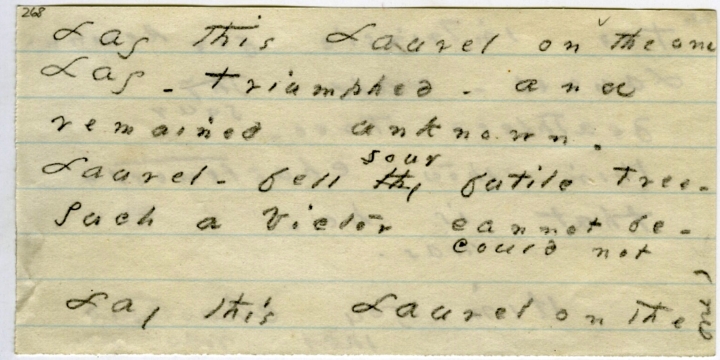 268
Lay this Laurel on the one
Lay - triumphed - and
remained unknown.
Laurel - fell your
thy futile Tree -
Such a Victor cannot be -
could not
Lay this Laurel on the one